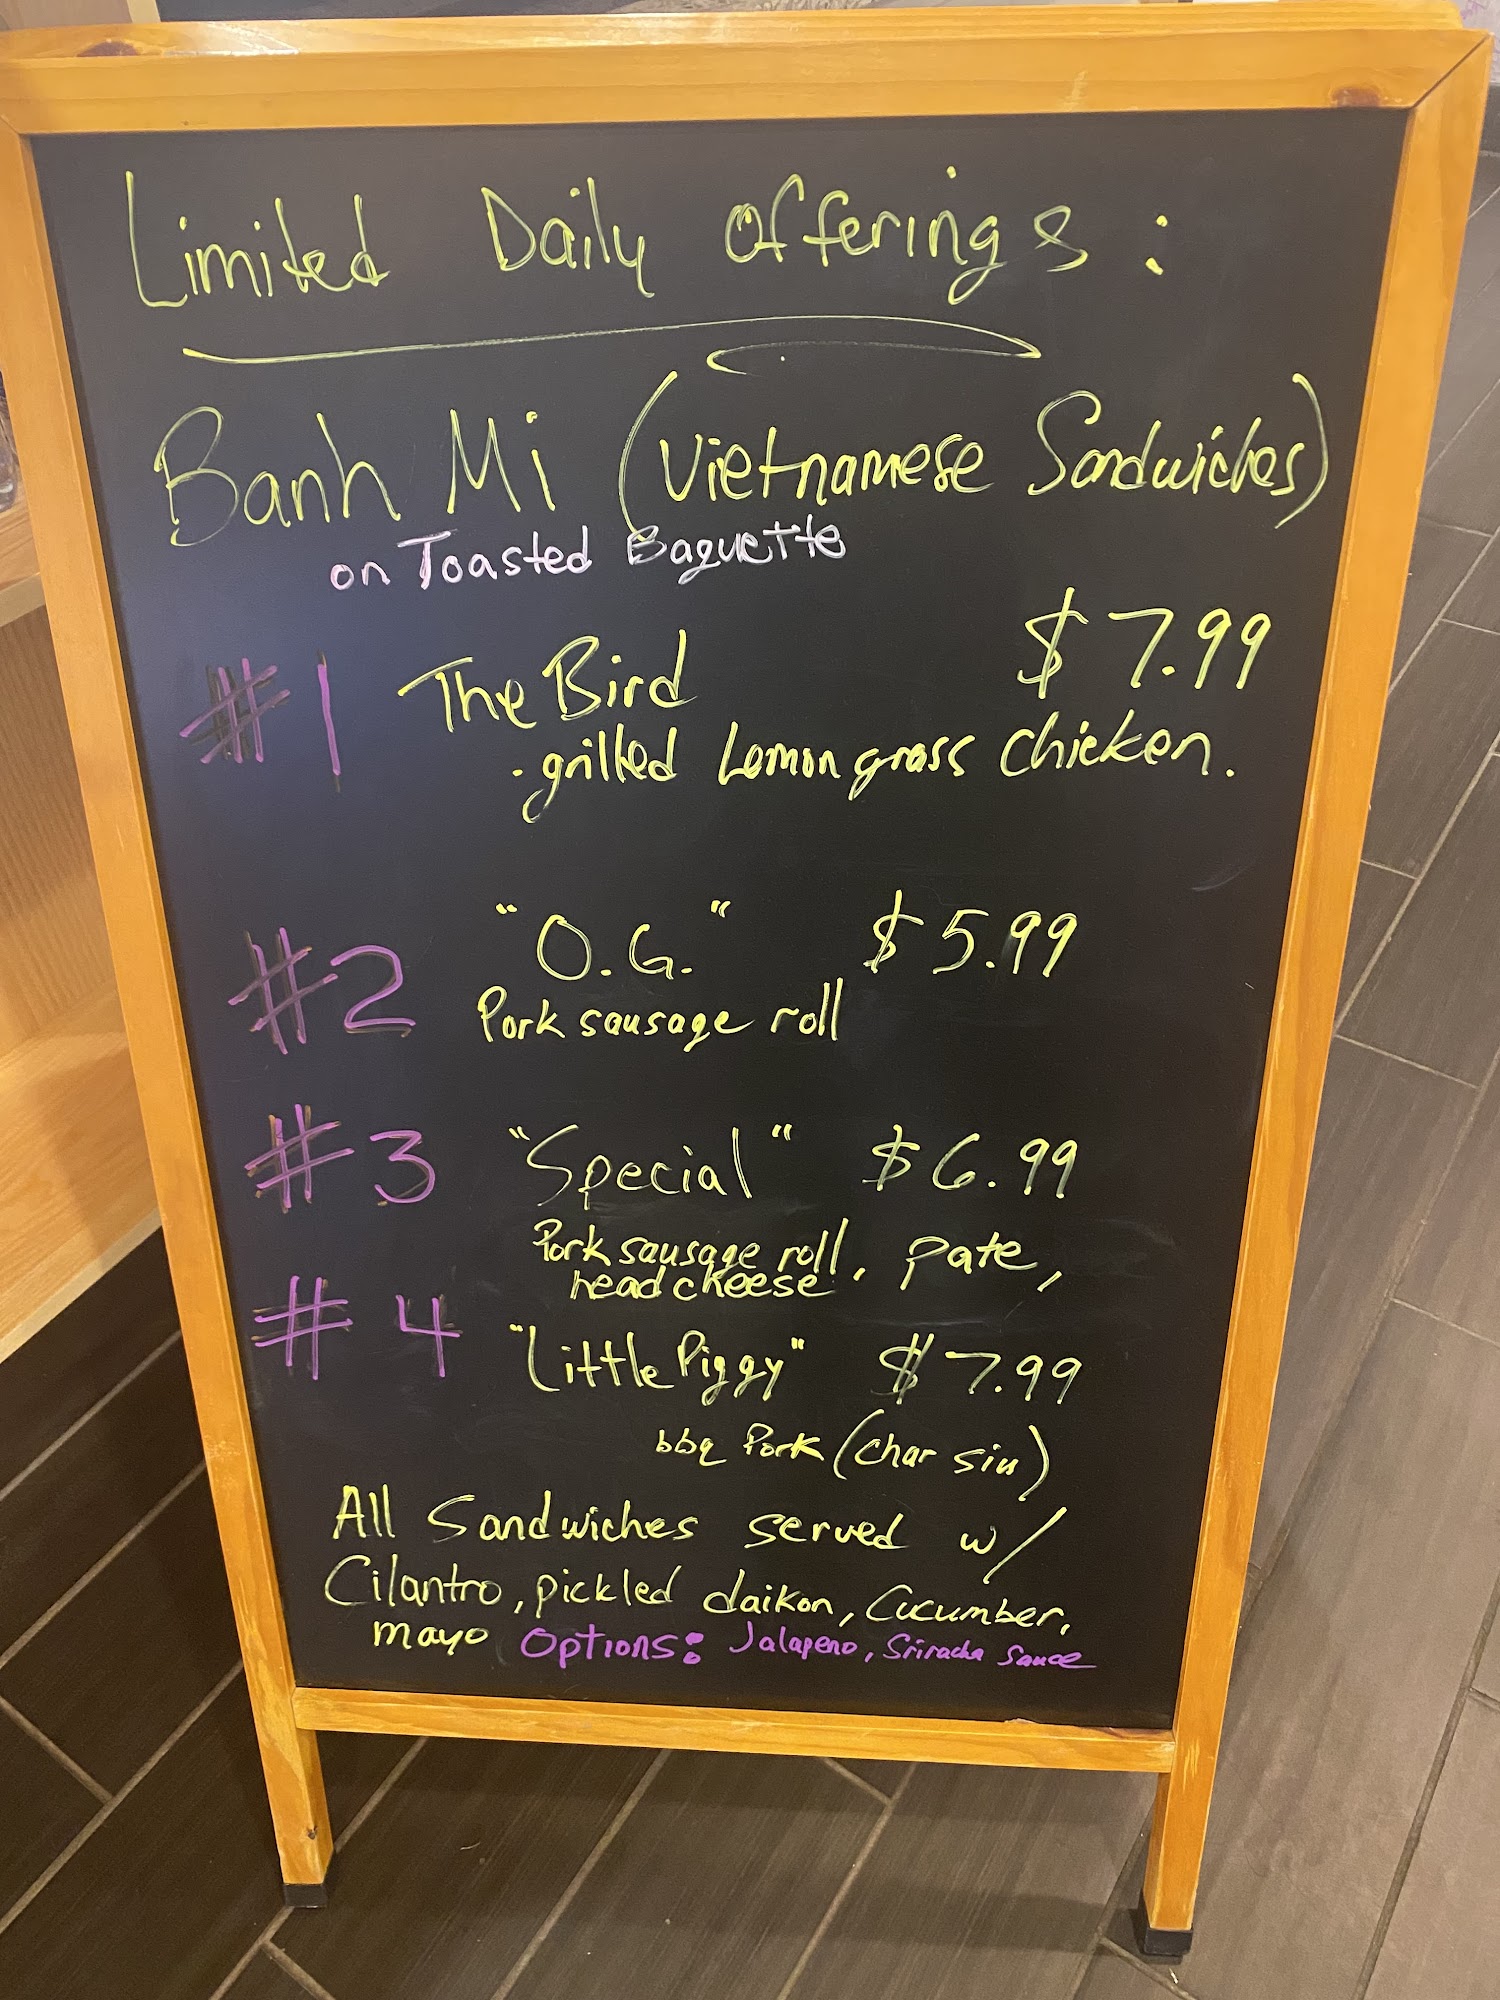 Limited Daily Offerings:
Banh Mi (Vietnamese Sandwiches)
on Toasted Baguette
#1 The Bird $7.99
· grilled Lemon grass Chicken.
#2 "O.G." $5.99
Pork sausage roll
#3 "Special" $6.99
Pork sausage roll, pate,
head cheese
#4 "Little Piggy" $7.99
bbq Pork (char siu)
All Sandwiches served w/
Cilantro, pickled daikon, Cucumber,
mayo Options: Jalapeno, Sriracha Sauce